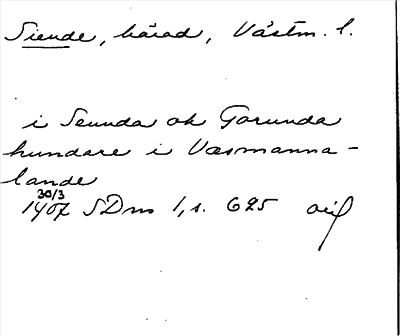 Siende, härad, Västm. l.
i Seunda ok Gorunda
hundare i Væsmanna-
lande
30/3
1407 SDns 1, s. 625 orif